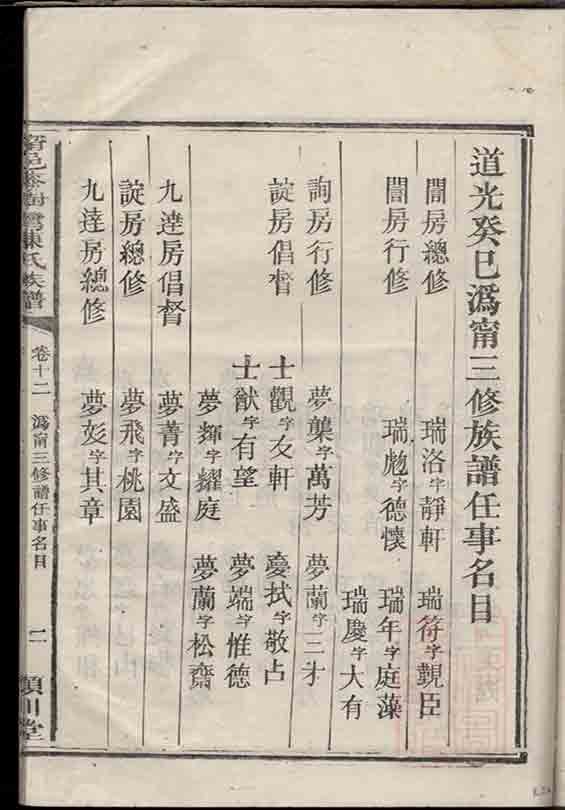 道光癸巳溈甯三修族譜任事名目
誾房總修　瑞洛字靜軒　瑞符字觀臣
誾房行修　瑞彪字德懷　瑞年字庭藻
瑞慶字大有
詢房行修　夢龏字萬芳　夢蘭字三才
諚房倡督　士觀字文軒　夢拭字敬占
士猷字有望　夢端字惟德
夢輝字耀庭　夢蘭字松齋
九達房倡督　夢菁字文盛
諚房總修　夢飛字桃園
九達房總修　夢彣字其章
甯邑 陳氏族譜　卷十二　溈甯三修譜任事名目　二　潁川堂